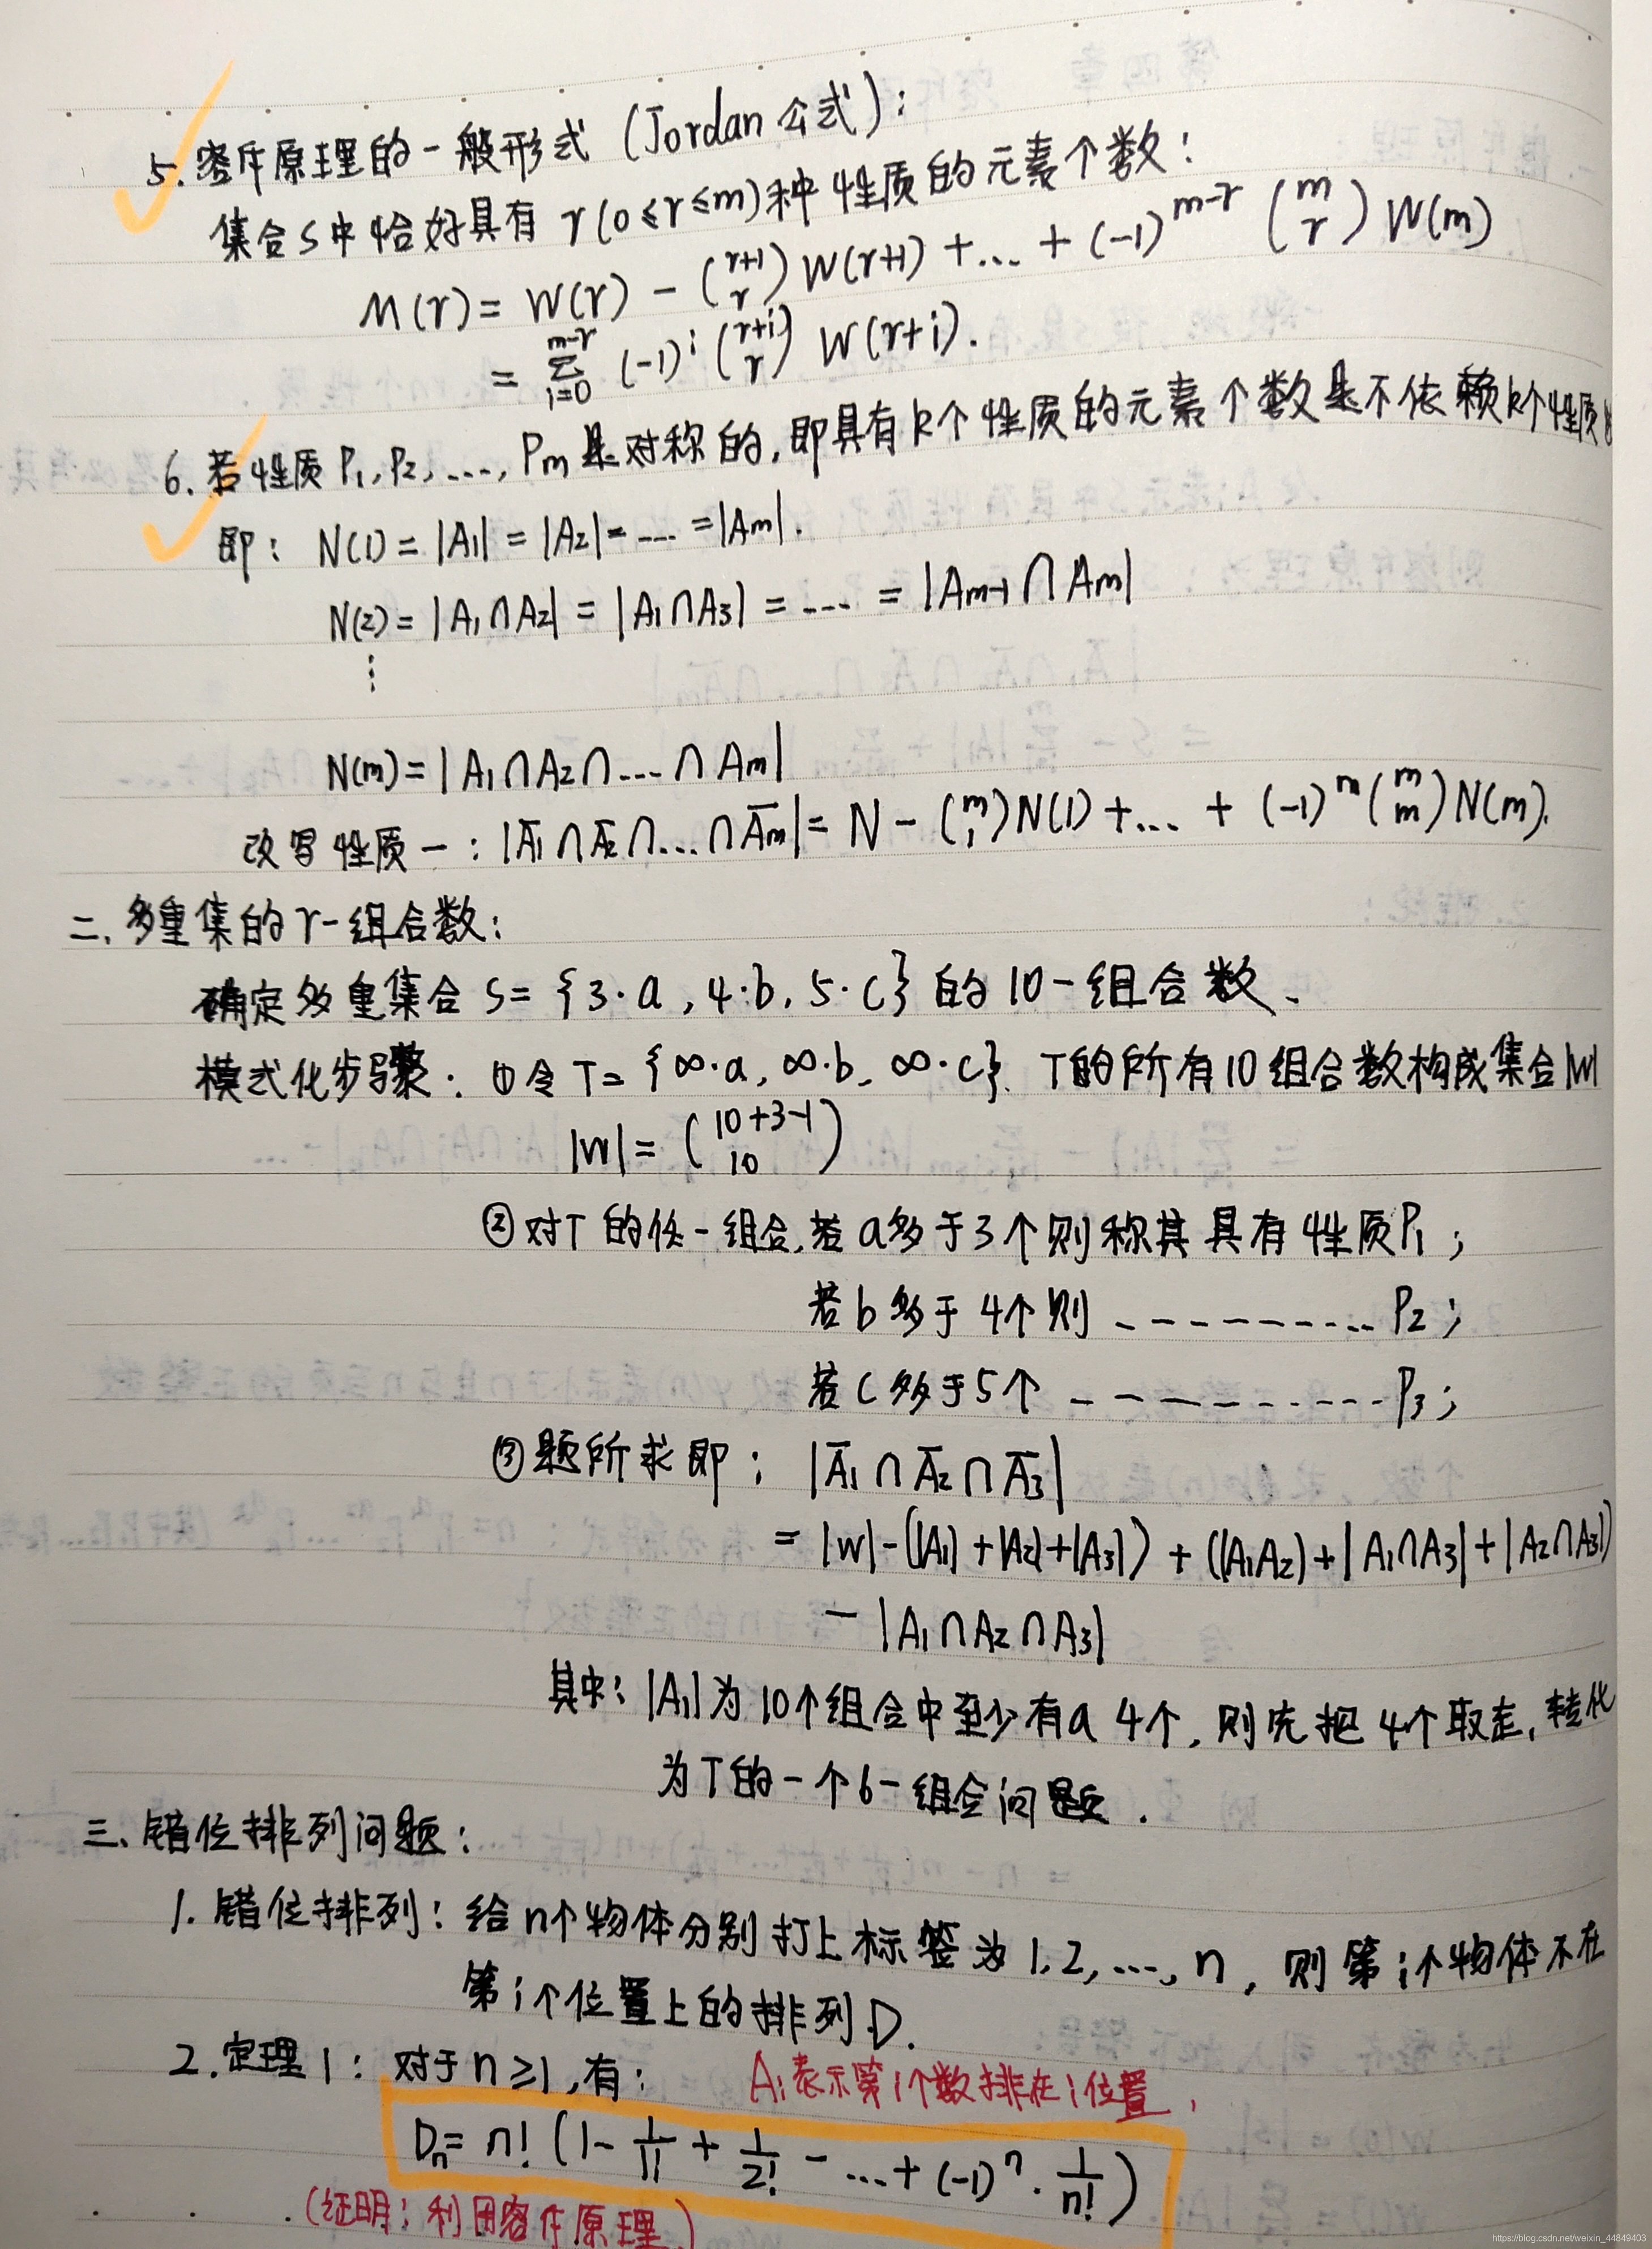 5. 容斥原理的一般形式 (Jordan 公式):
集合S中恰好具有 r(0≤r≤m)种性质的元素个数:
N(r) = W(r) - (r+1 r) W(r+1) + ... + (-1)^{m-r} (m r) W(m)
= Σ_{i=0}^{m-r} (-1)^i (r+i r) W(r+i).
6. 若性质 P₁, P₂, ..., Pm 是对称的, 即具有k个性质的元素个数是不依赖k个性质
即: N(1) = |A₁| = |A₂| = ... = |Am|.
N(2) = |A₁∩A₂| = |A₁∩A₃| = .... = |Am-1∩Am|
⋮
N(m) = |A₁∩A₂∩...∩Am|
改写性质一: |Ā₁∩Ā₂∩...∩Ām| = N - (m 1)N(1) + ... + (-1)^m (m m) N(m).
二、多重集的r-组合数:
确定多重集合 S = {3·a, 4·b, 5·c} 的 10-组合数、
模式化步骤: ①令 T = {∞·a, ∞·b, ∞·c}. T的所有10组合数构成集合|W|
|W| = (10+3-1 10)
②对T的任一组合,若a多于3个则称其具有性质P₁;
若b多于4个则 ---------- P₂;
若c多于5个 ---------- P₃;
③题所求即: |Ā₁∩Ā₂∩Ā₃|
= |W| - (|A₁| + |A₂| + |A₃|) + (|A₁A₂) + |A₁∩A₃| + |A₂∩A₃|)
- |A₁∩A₂∩A₃|
其中: |A₁|为10个组合中至少有a 4个, 则先把4个取走, 转化
为T的一个6-组合问题.
三、错位排列问题:
1. 错位排列: 给n个物体分别打上标签为1, 2, ..., n, 则第i个物体不在
第i个位置上的排列D.
2. 定理1: 对于n≥1, 有: Ai表示第i个数排在i位置,
Dn = n! (1 - 1/1! + 1/2! - ... + (-1)^n · 1/n!)
(证明: 利用容斥原理)
https://blog.csdn.net/weixin_44849403